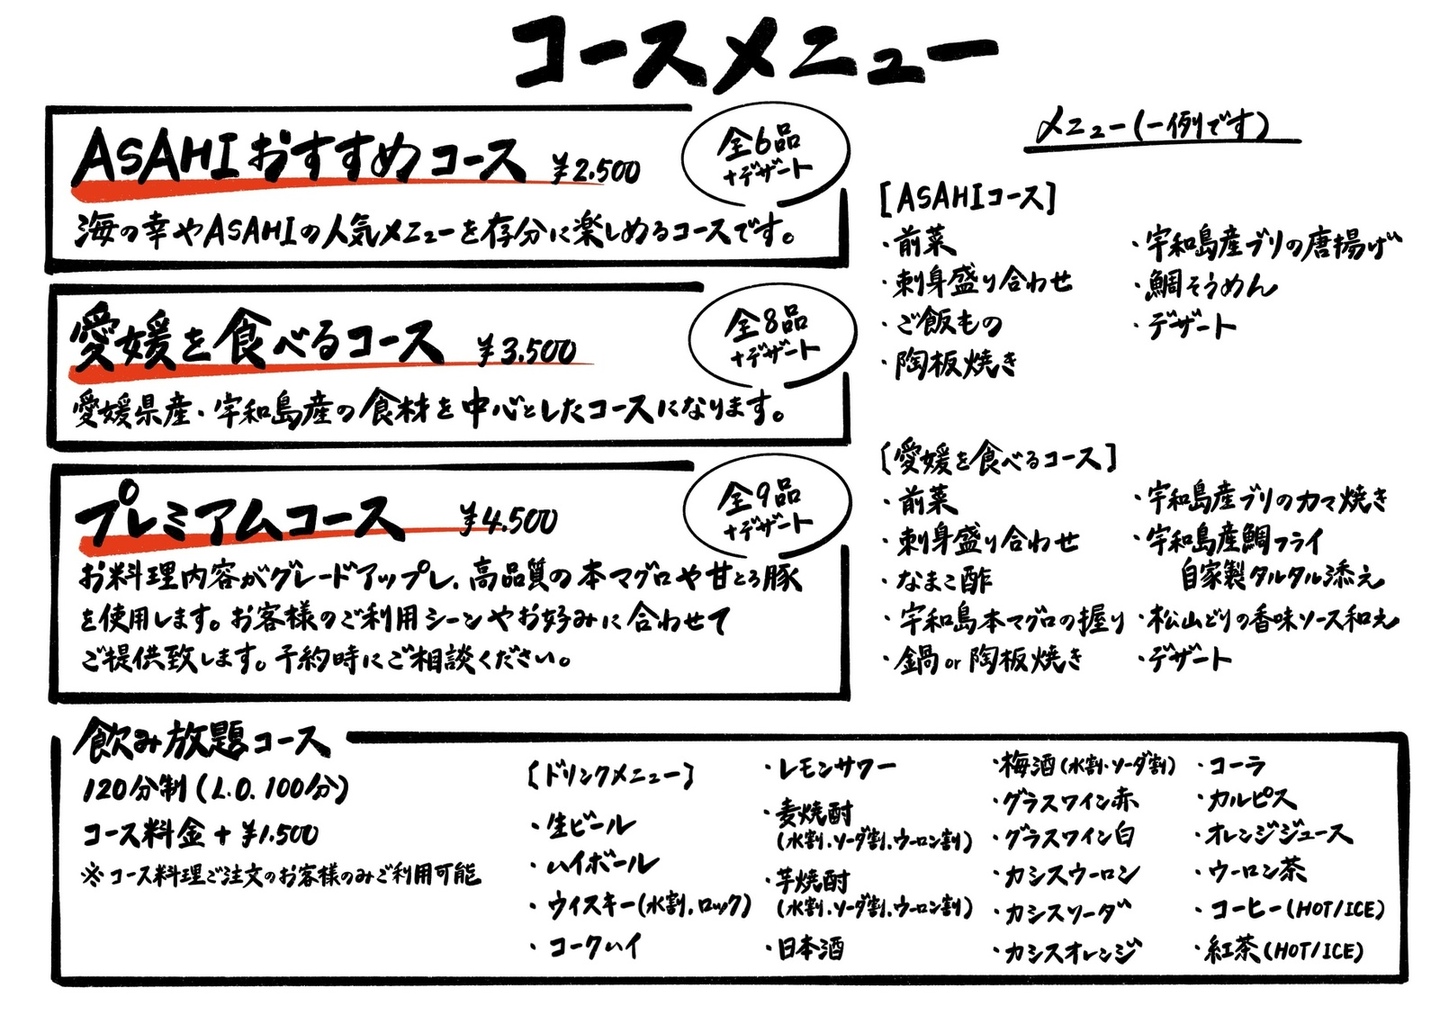 コースメニュー
ASAHIおすすめコース ¥2.500
全6品
+デザート
海の幸やASAHIの人気メニューを存分に楽しめるコースです。
愛媛を食べるコース ¥3.500
全8品
+デザート
愛媛県産・宇和島産の食材を中心としたコースになります。
プレミアムコース ¥4.500
全9品
+デザート
お料理内容がグレードアップし、高品質の本マグロや甘とろ豚
を使用します。お客様のご利用シーンやお好みに合わせて
ご提供致します。予約時にご相談ください。
メニュー(一例です)
[ASAHIコース]
・前菜
・刺身盛り合わせ
・ご飯もの
・陶板焼き
・宇和島産ブリの唐揚げ
・鯛そうめん
・デザート
[愛媛を食べるコース]
・前菜
・刺身盛り合わせ
・なまこ酢
・宇和島本マグロの握り
・鍋or陶板焼き
・宇和島産ブリのカマ焼き
・宇和島産鯛フライ
自家製タルタル添え
・松山どりの香味ソース和え
・デザート
飲み放題コース
120分制(L.O.100分)
コース料金+¥1.500
※コース料理ご注文のお客様のみご利用可能
[ドリンクメニュー]
・生ビール
・ハイボール
・ウイスキー(水割.ロック)
・コークハイ
・レモンサワー
・麦焼酎
(水割.ソーダ割.ウーロン割)
・芋焼酎
(水割.ソーダ割.ウーロン割)
・日本酒
・梅酒(水割・ソーダ割)
・グラスワイン赤
・グラスワイン白
・カシスウーロン
・カシスソーダ
・カシスオレンジ
・コーラ
・カルピス
・オレンジジュース
・ウーロン茶
・コーヒー(HOT/ICE)
・紅茶(HOT/ICE)